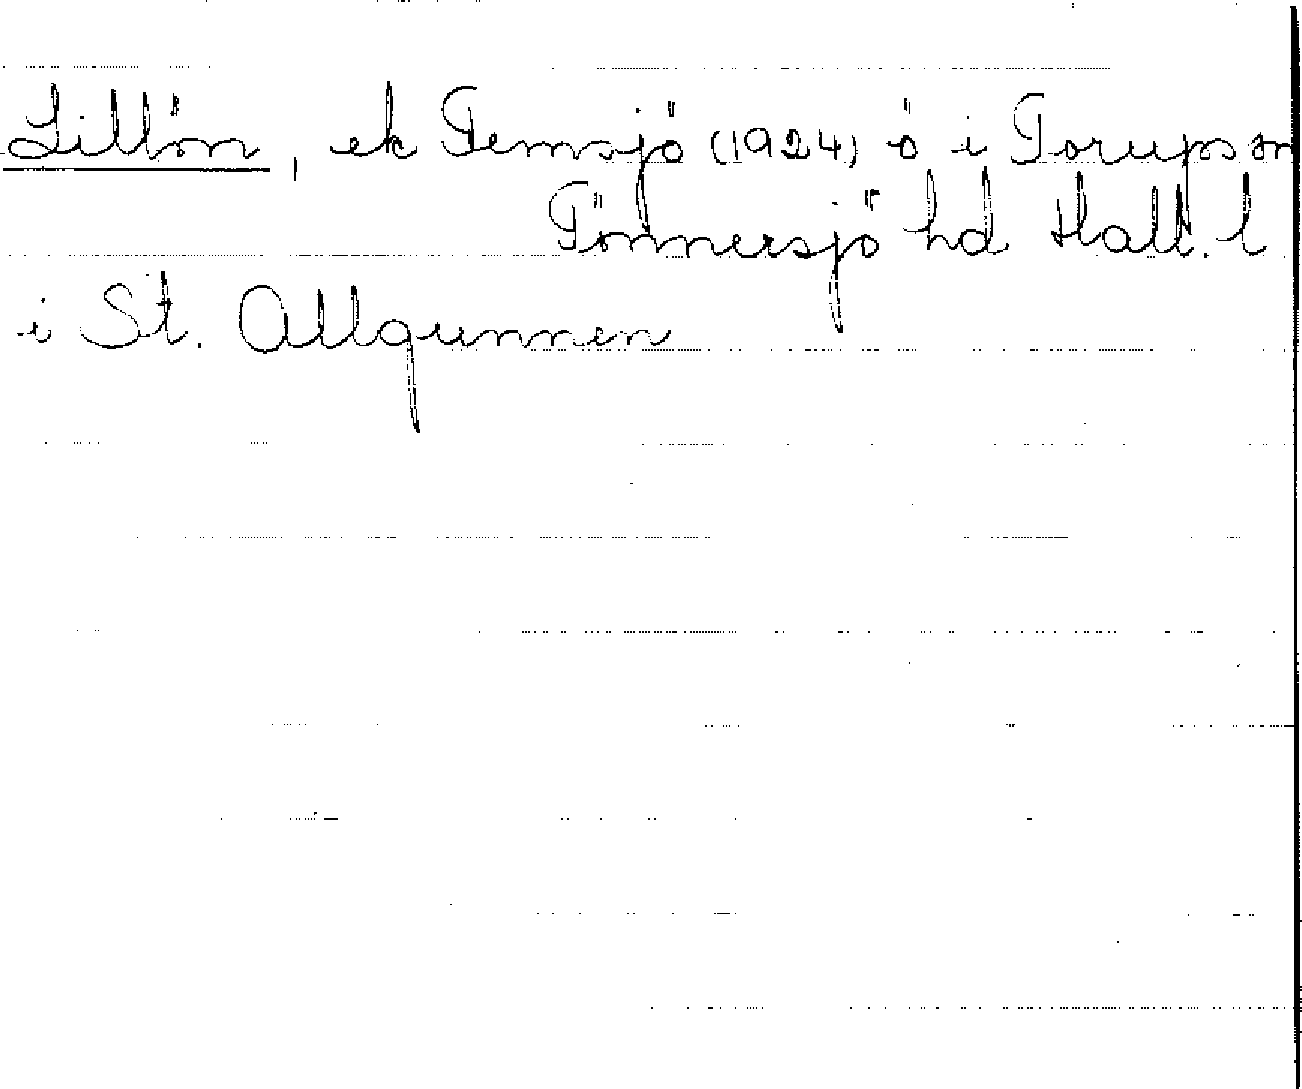 Lillön, ek Femsjö (1924) ö i Torups sn
Tönnersjö hd Hall. l
i St. Allgunnen